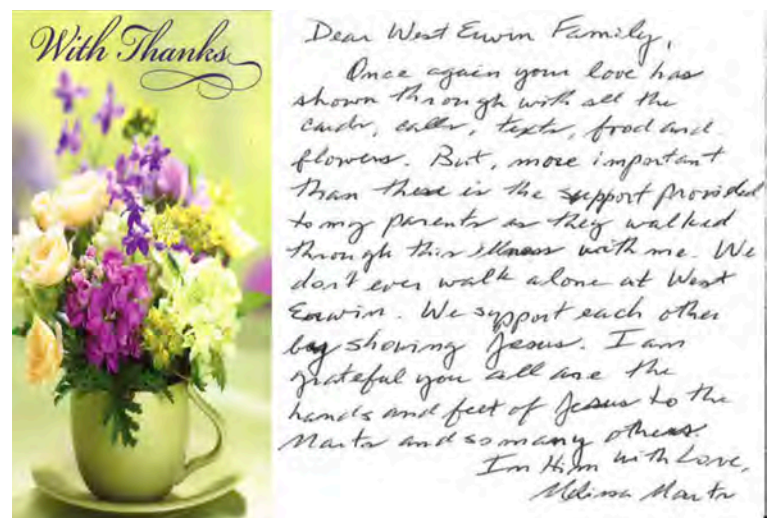 With Thanks
Dear West Erwin Family,
Once again your love has
shown through with all the
cards, calls, texts, food and
flowers. But, more important
than these is the support provided
to my parents as they walked
through this illness with me. We
don't ever walk alone at West
Erwin. We support each other
by showing Jesus. I am
grateful you all are the
hands and feet of Jesus to the
and so many others.
In Him with Love,
Melissa